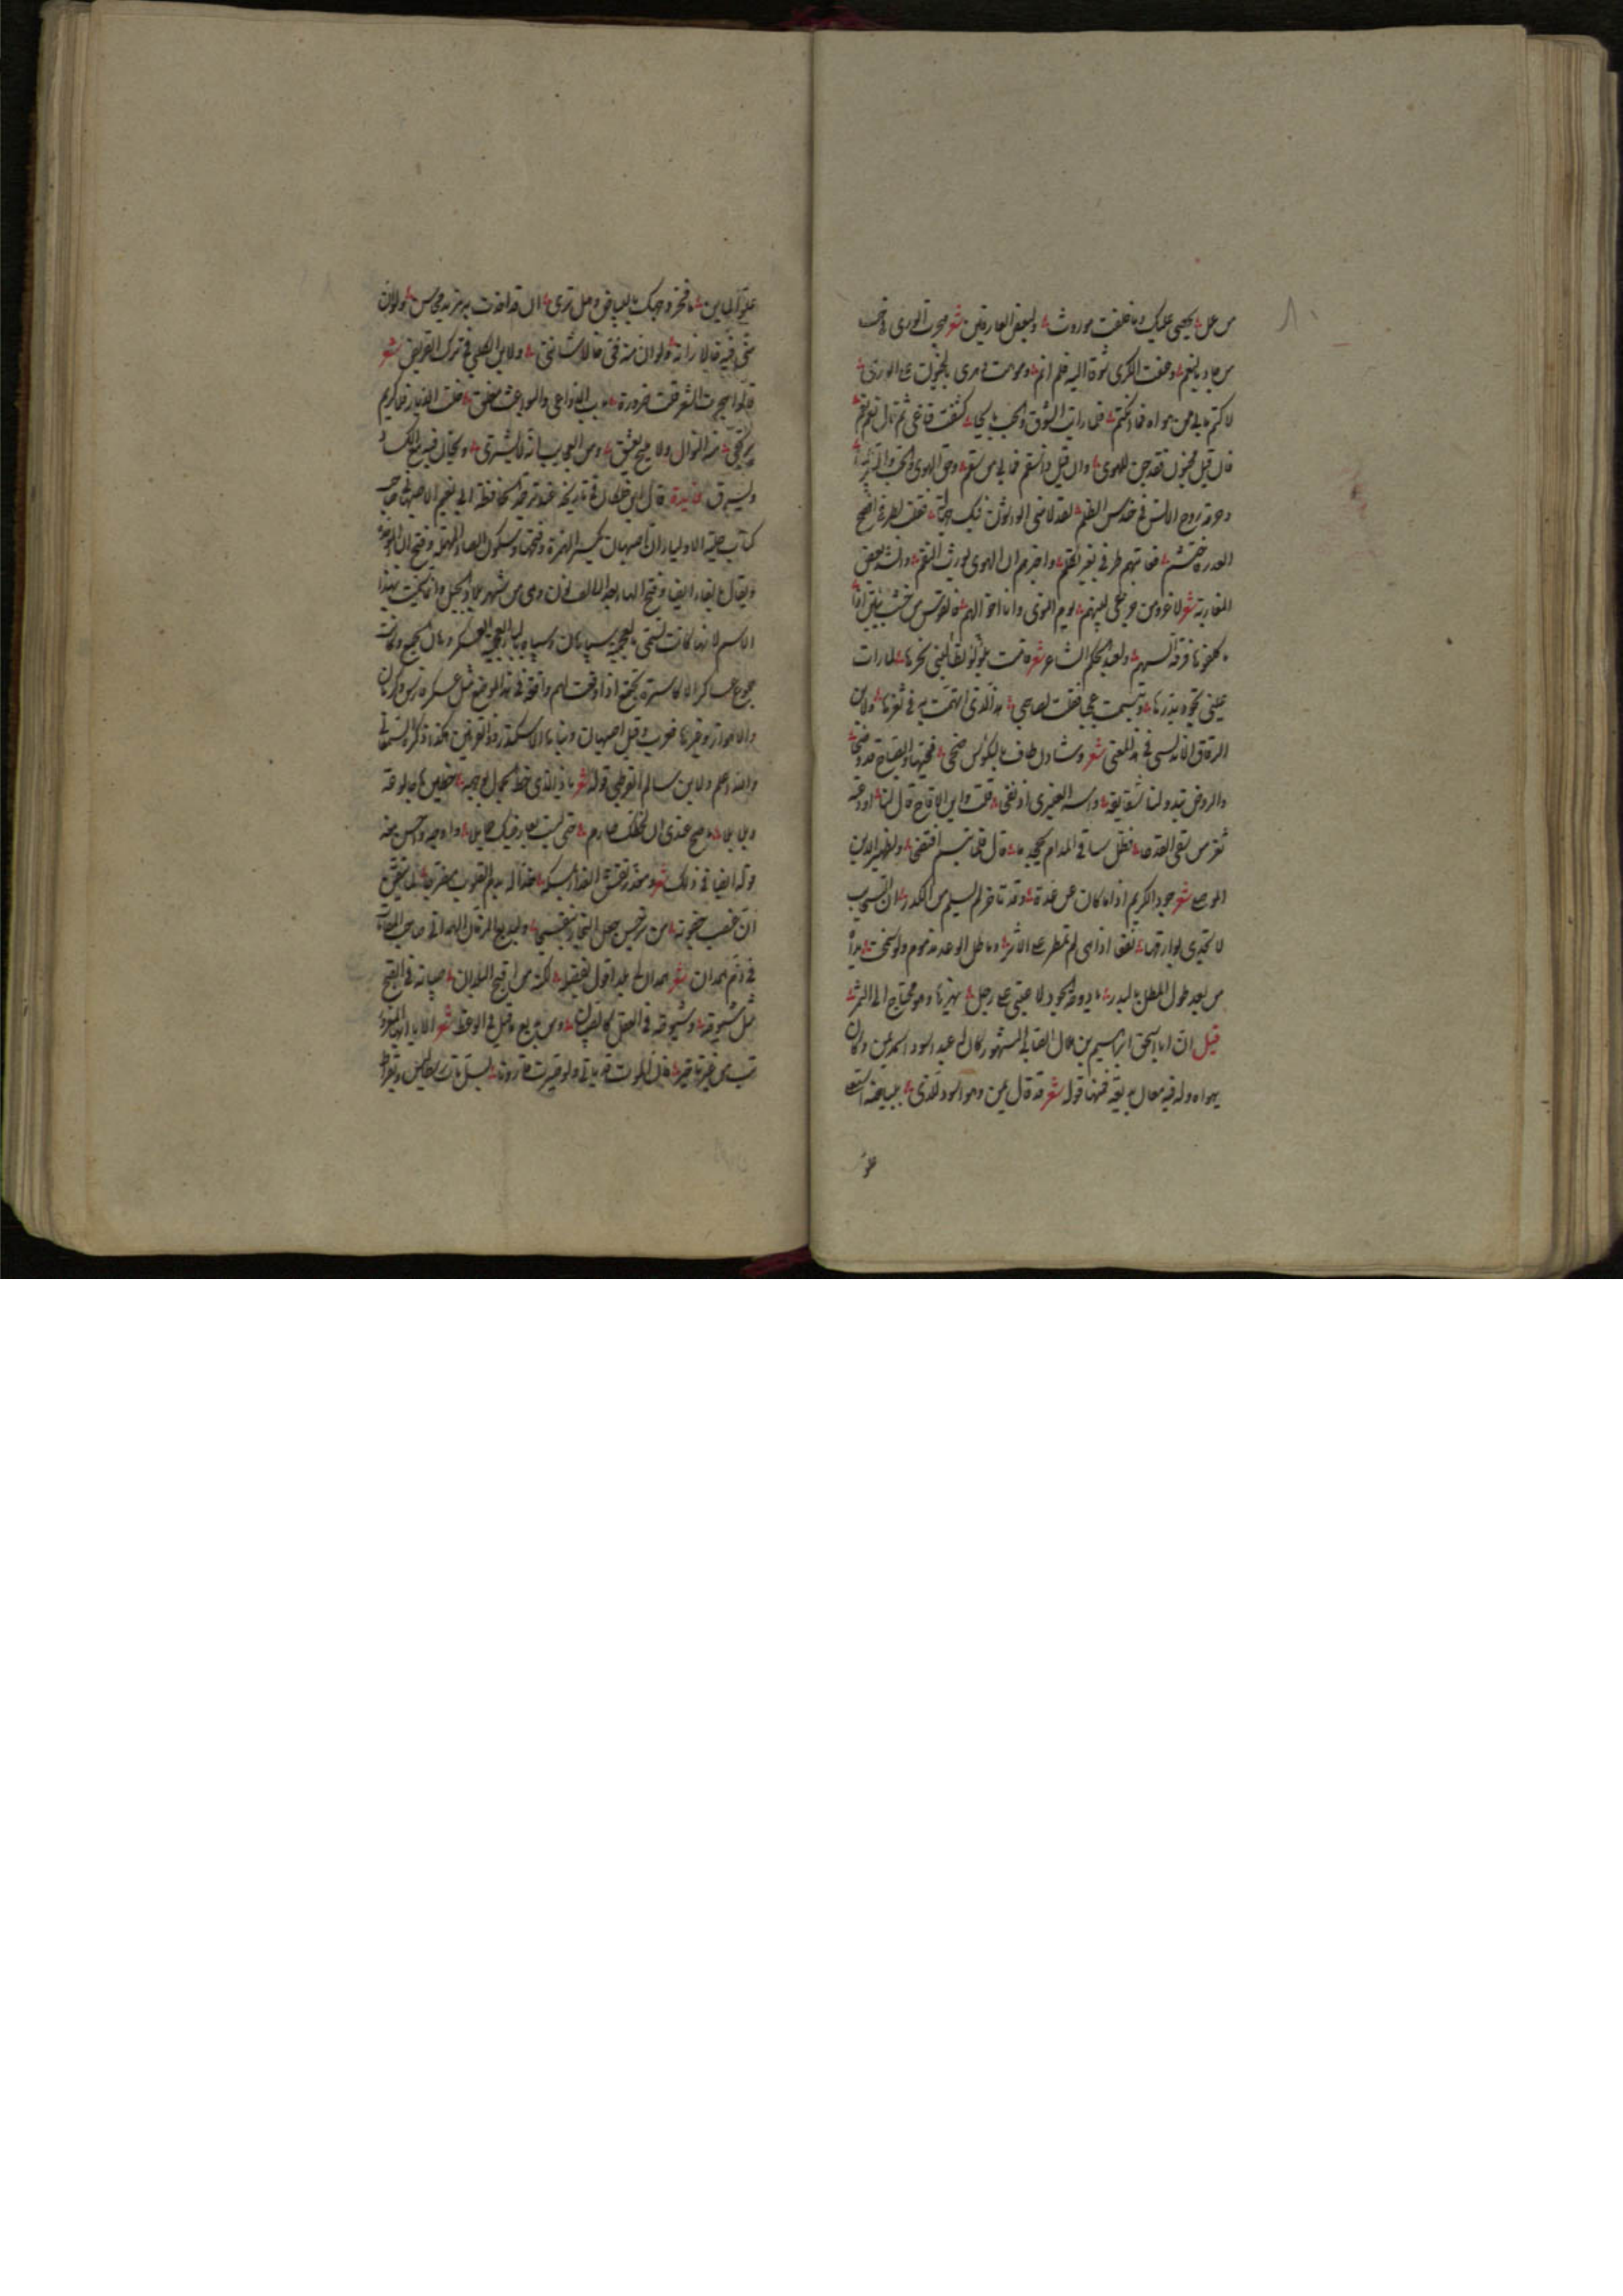 من عمل يحصى عليك وما خلفت موروث ولبعض العارفين شعر هجرت الورى في حب
من جاد بالنعم وعفت الكرى شوقا اليه فلم انم وموهت دهري بالجنون عن الورى
لاكتم ما بي من هواه فما انكتم فلما رايت الشوق والحب بائحا كشفت قناعي ثم قلت نعم نعم
فان قيل مجنون فقد جن للهوى وان قيل مسقام فما بي من سقم وحق الهوى والحب
وحرمة روح الانس في حندس الظلم لقد لامني الواشون فيك فقلت لطرفي افصح
العذر فاحتشم فعاتبهم طرفي بغير تكلم واخبرهم ان الهوى يورث السقم وانشد بعض
المغاربة شعر لا غرو من جزعي لبينهم يوم النوى وانا اخو الهم فالقوس من خشب تئن اذا
ما كلفوها فرقة السهم ولعبد الحكم الشاعر شعر قامت تطالبني بلؤلؤ نحرها لما رات
عيني تجود بدرها وتبسمت عجبا فقلت لصاحبي هذا الذي اتهمت به في ثغرها ولابن
الزقاق الاندلسي في هذا المعنى شعر وشادن طاف بالكؤوس ضحى فحثها والصباح قد وضحا
والروض يبدو لنا شقايقه واسه العنبري قد نفحا قلت واين الاقاح قال لنا اودعته
ثغر من سقى القدحا فظل ساقي المدام يجحد ما قال فلما تبسم افتضحا ولظهير الدين
الموصلي شعر جود الكريم اذا ما كان عن عدة وقد تاخر لم يسلم من الكدر ان السحاب
لا تجدي بوارقها نفعا اذا هي لم تمطر على الاثر وماطل الوعد مذموم ولو سمحت يداه
من بعد طول المطل بالبدر يا دوحة الجود لا عتب على رجل يهزها وهو محتاج الى الثمر
قيل ان ابا اسحق ابراهيم بن هلال الصابي المشهور كان له عبد اسود اسمه يمن وكان
يهواه وله فيه معان بديعة فمنها قوله شعر قد قال يمن وهو اسود للذي ببياضه استعلى
علو
علو الخاين ما فخر وجهك بالبياض وهل ترى ان قد افدت به مزيد محاسن ولو ان
مني فيه خالا زانه ولو ان منه في خالا شانني ولابن الكلبي في ترك القريض شعر
قالوا هجرت الشعر قلت ضرورة باب الدواعي والبواعث مغلق خلت الديار فلا كريم
يرتجى منه النوال ولا مليح يعشق ومن العجايب انه لا يشترى ويخان فيه مع الكساد
ويسرق فايدة قال ابن خلكان في تاريخه عند ترجمة الحافظ ابي نعيم الاصبهاني صاحب
كتاب حلية الاولياء ان اصبهان بكسر الهمزة وفتحها وسكون الصاد المهملة وفتح الباء الموحدة
ويقال بالفاء ايضا وفتح الهاء وبعد الالف نون وهي من اشهر بلاد الجبل وانما سميت بهذا
الاسم لانها كانت تسمى بالعجمية سپاهان وسپاه بالعجمية العسكر وهان الجمع وكانت
جموع عساكر الاكاسرة تجتمع اذا وقعت لهم واقعة في هذا الموضع مثل عسكر فارس وكرمان
والاهواز وغيرها فعرب وقيل اصبهان وبناها الاسكندر ذو القرنين هكذا ذكره السمعاني
والله اعلم ولابن سالم القرطبي قوله شعر يا ذا الذي خط الجمال بوجهه خطين هاجا لوعة
وبلابلا ما صح عندي ان لحظك صارم حتى لبست بعارضيك حمايلا
وله ايضا في ذلك شعر
ان غضب ولبديع الزمان الهمداني صاحب المقامات
في ذم همدان شعر همدان لي بلد اقول بفضله لكنه من اقبح البلدان صبيانه في القبح
مثل شيوخه وشيوخه في العقل كالصبيان ومن بديع ما قيل في الوعظ شعر الا يا ايها المغرور
تب من غير تاخير فان الموت قد ياتي ولو صيرت قارونا